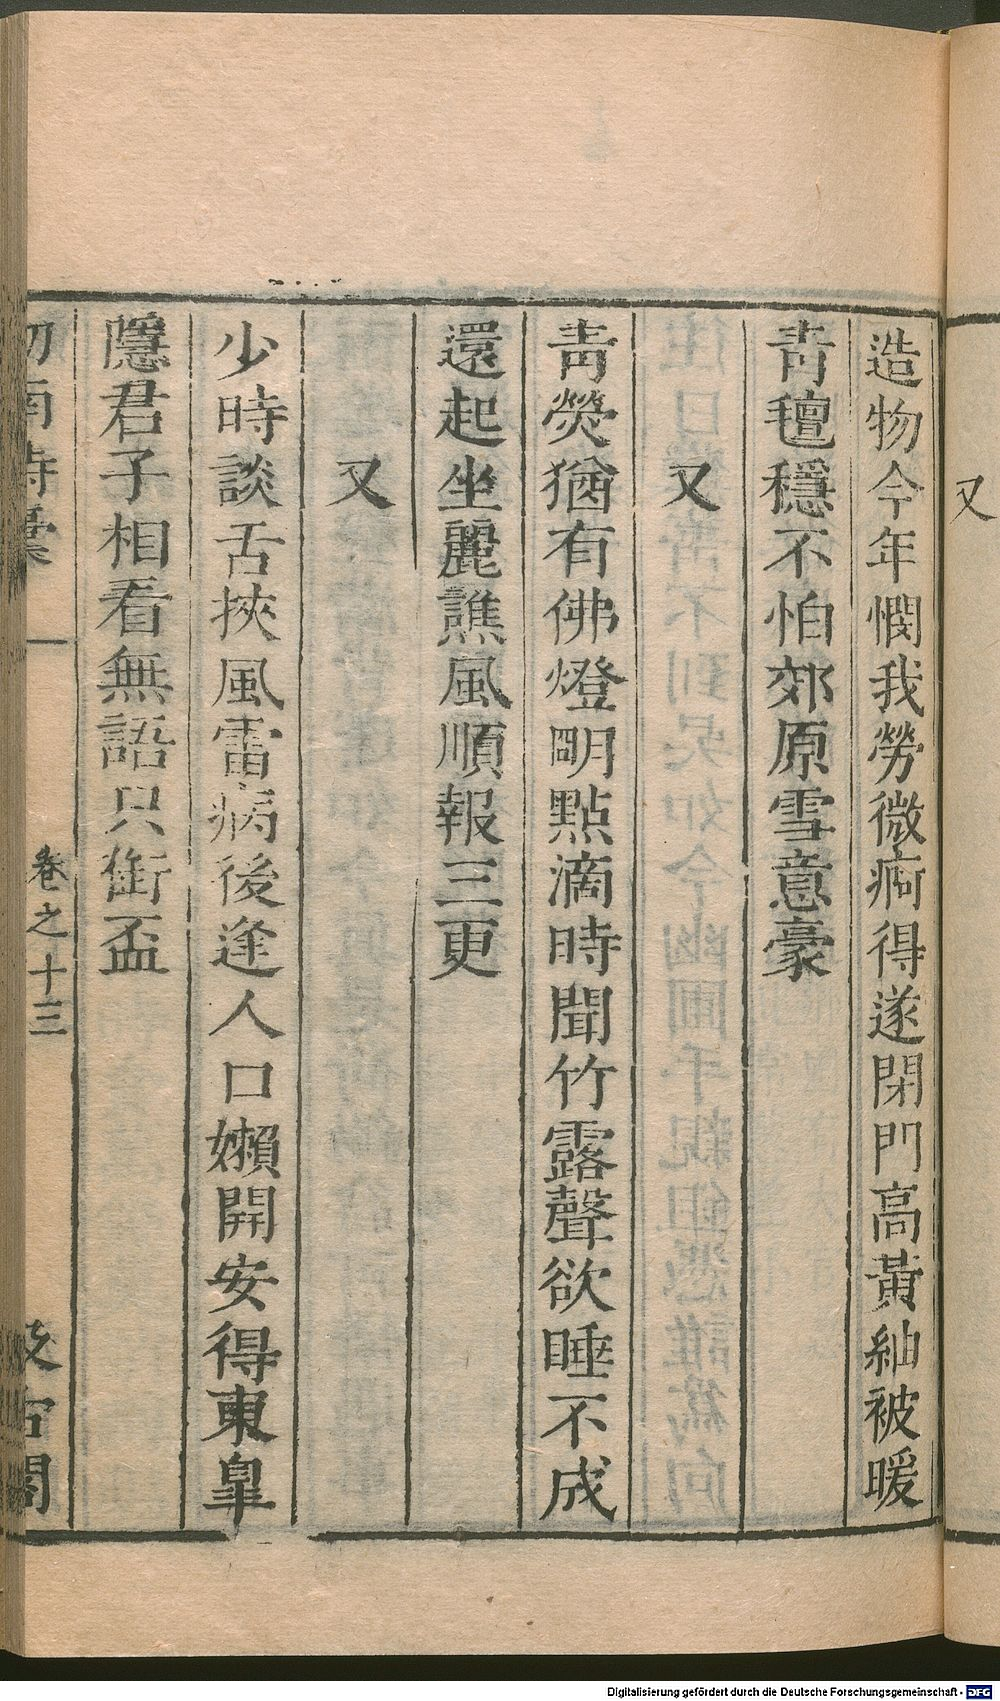 又
造物今年憫我勞微痾得遂閉門高黃紬被暖
靑氊穩不怕郊原雪意豪
又
靑熒猶有佛燈明點滴時聞竹露聲欲睡不成
還起坐麗譙風順報三更
又
少時談舌挾風雷病後逢人口嬾開安得東皐
隱君子相看無語只銜盃
劒南詩稾
卷之十三
汲古閣
Digitalisierung gefördert durch die Deutsche Forschungsgemeinschaft - DFG